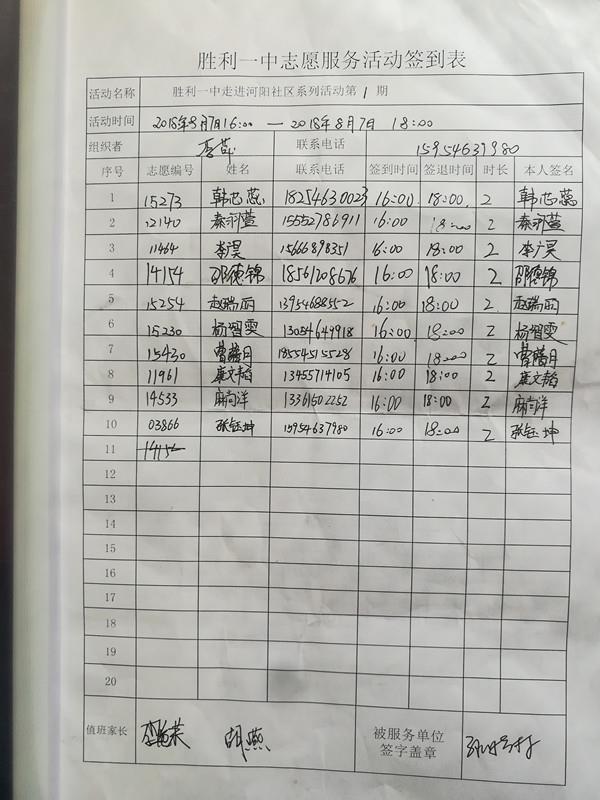 胜利一中志愿服务活动签到表
活动名称 胜利一中走进河阳社区系列活动第1期
活动时间 2018年8月7日16:00 — 2018年8月7日 18:00
组织者 联系电话 15954637980
序号 志愿编号 姓名 联系电话 签到时间 签退时间 时长 本人签名
1 15273 韩芯蕊 18254630023 16:00 18:00 2 韩芯蕊
2 12140 15552786911 16:00 18:00 2
3 11464 李昊 15666898351 16:00 18:00 2 李广昊
4 14154 邵德锦 18561208676 16:00 18:00 2 邵德锦
5 15254 赵瑞雨 13954688552 16:00 18:00 2 赵瑞雨
6 15230 杨智雯 13054649918 16:00 18:00 2 杨智雯
7 15430 18554515528 16:00 18:00 2
8 11961 崔文韬 13455714105 16:00 18:00 2 崔文韬
9 14533 麻向洋 13361502252 16:00 18:00 2 麻向洋
10 03866 张钰坤 15954637980 16:00 18:00 2 张钰坤
11
12
13
14
15
16
17
18
19
20
值班家长 胡燕 被服务单位
签字盖章